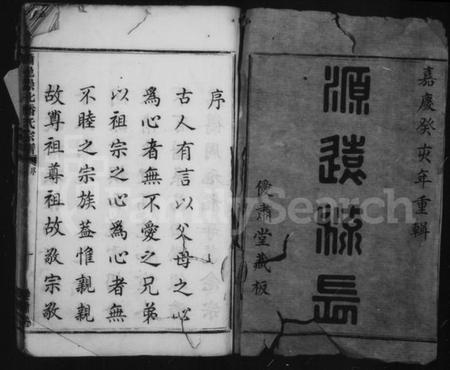 嘉慶癸亥年重輯
源遠流長
儉肅堂藏板
序
古人有言以父母之心
為心者無不愛之兄弟
以祖宗之心為心者無
不睦之宗族蓋惟親親
故尊祖尊祖故敬宗敬
FamilySearch